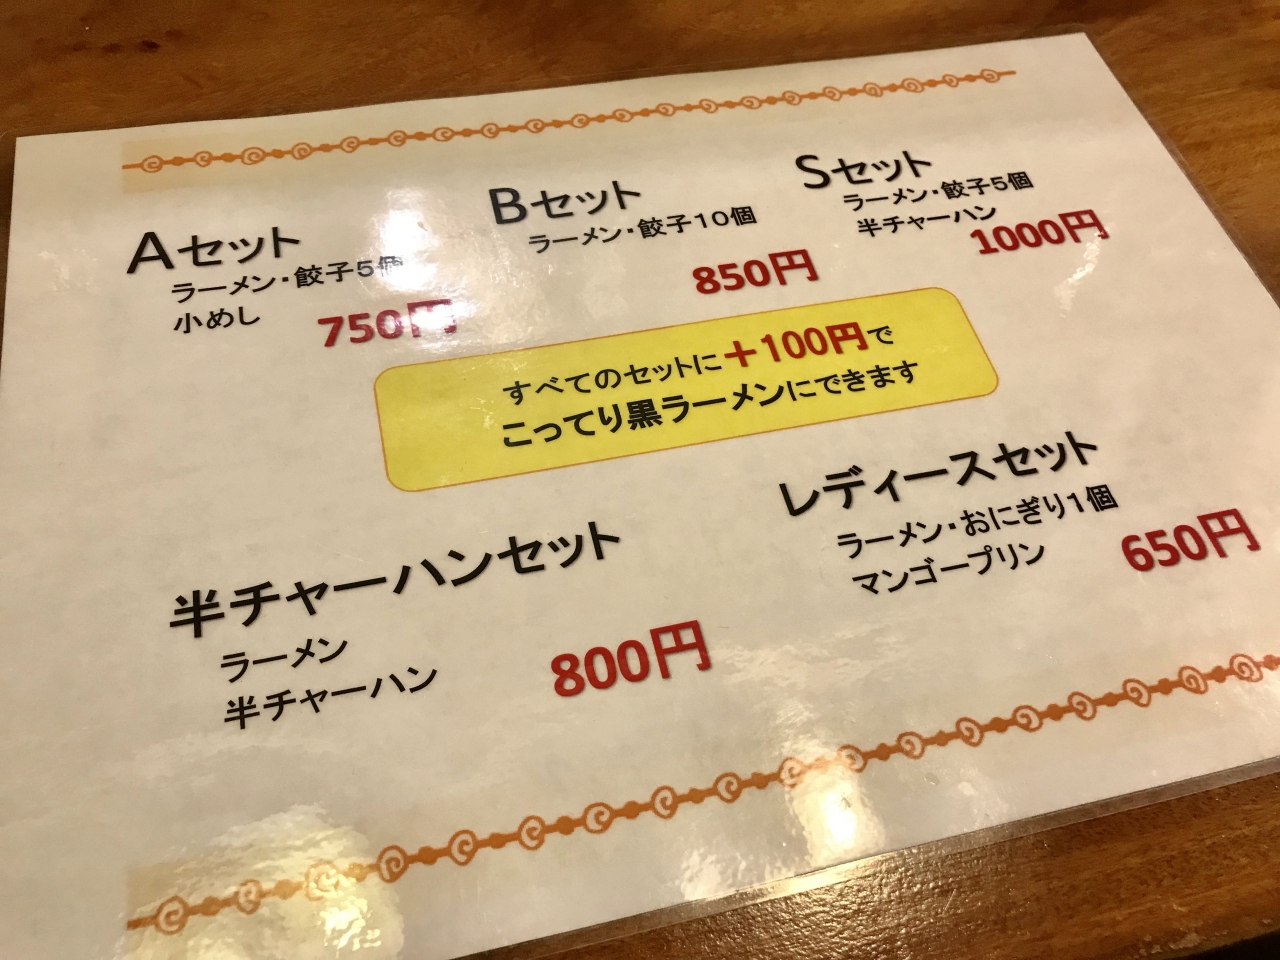 Aセット
ラーメン・餃子5個
小めし
750円
Bセット
ラーメン・餃子10個
850円
Sセット
ラーメン・餃子5個
半チャーハン
1000円
すべてのセットに+100円で
こってり黒ラーメンにできます
半チャーハンセット
ラーメン
半チャーハン
800円
レディースセット
ラーメン・おにぎり1個
マンゴープリン
650円